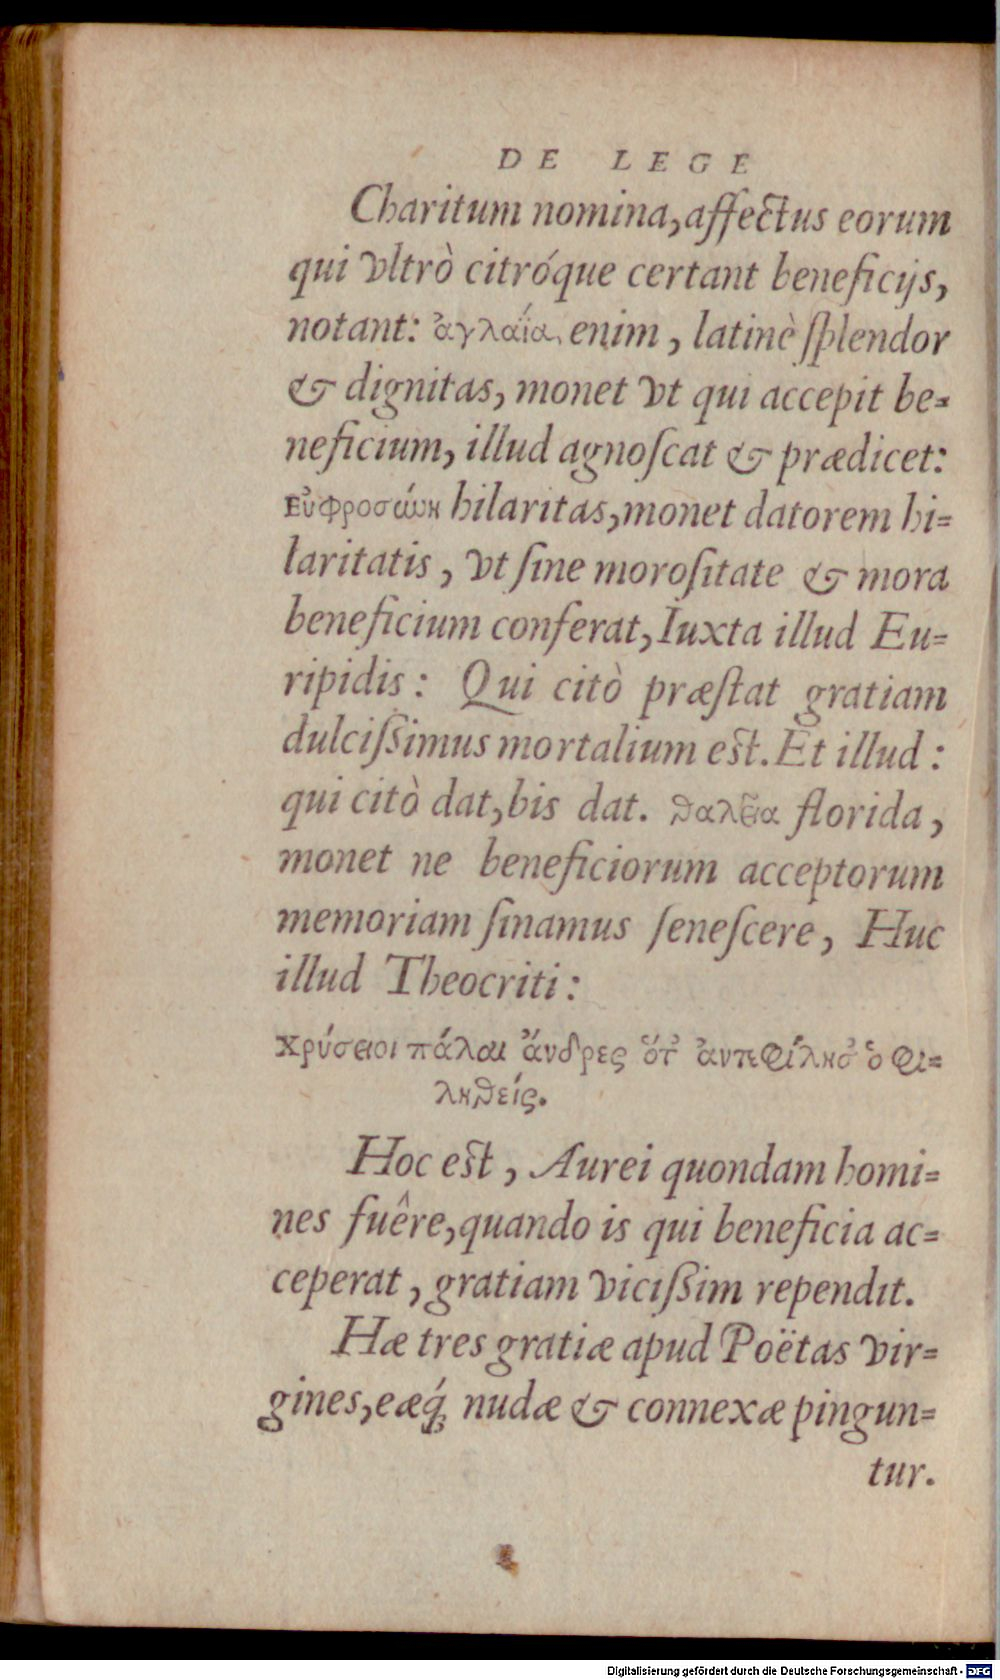 DE LEGE
Charitum nomina, affectus eorum
qui vltrò citróque certant beneficijs,
notant: ἀγλαΐα, enim, latinè ſplendor
& dignitas, monet vt qui accepit be=
neficium, illud agnoſcat & prædicet:
Εὐφροσύνη hilaritas, monet datorem hi=
laritatis, vt ſine moroſitate & mora
beneficium conferat, Iuxta illud Eu=
ripidis: Qui citò præſtat gratiam
dulciſsimus mortalium est. Et illud:
qui citò dat, bis dat. θαλεῖα florida,
monet ne beneficiorum acceptorum
memoriam ſinamus ſeneſcere, Huc
illud Theocriti:
Χρύσειοι πάλαι ἄνδρες ὅτ' ἀντεφίλησ' ὁ φι=
ληθείς.
Hoc est, Aurei quondam homi=
nes fuêre, quando is qui beneficia ac=
ceperat, gratiam viciſsim rependit.
Hæ tres gratiæ apud Poëtas vir=
gines, eæq́; nudæ & connexæ pingun=
tur.
Digitalisierung gefördert durch die Deutsche Forschungsgemeinschaft - DFG